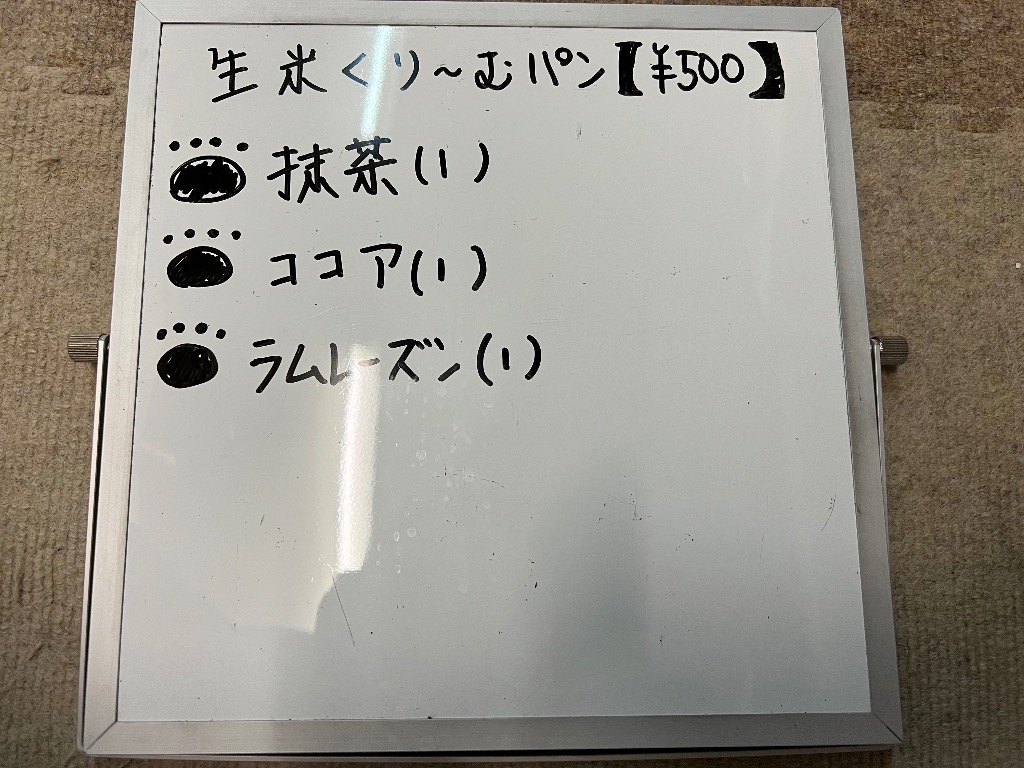 生米くり～むパン【¥500】
抹茶(1)
ココア(1)
ラムレーズン(1)